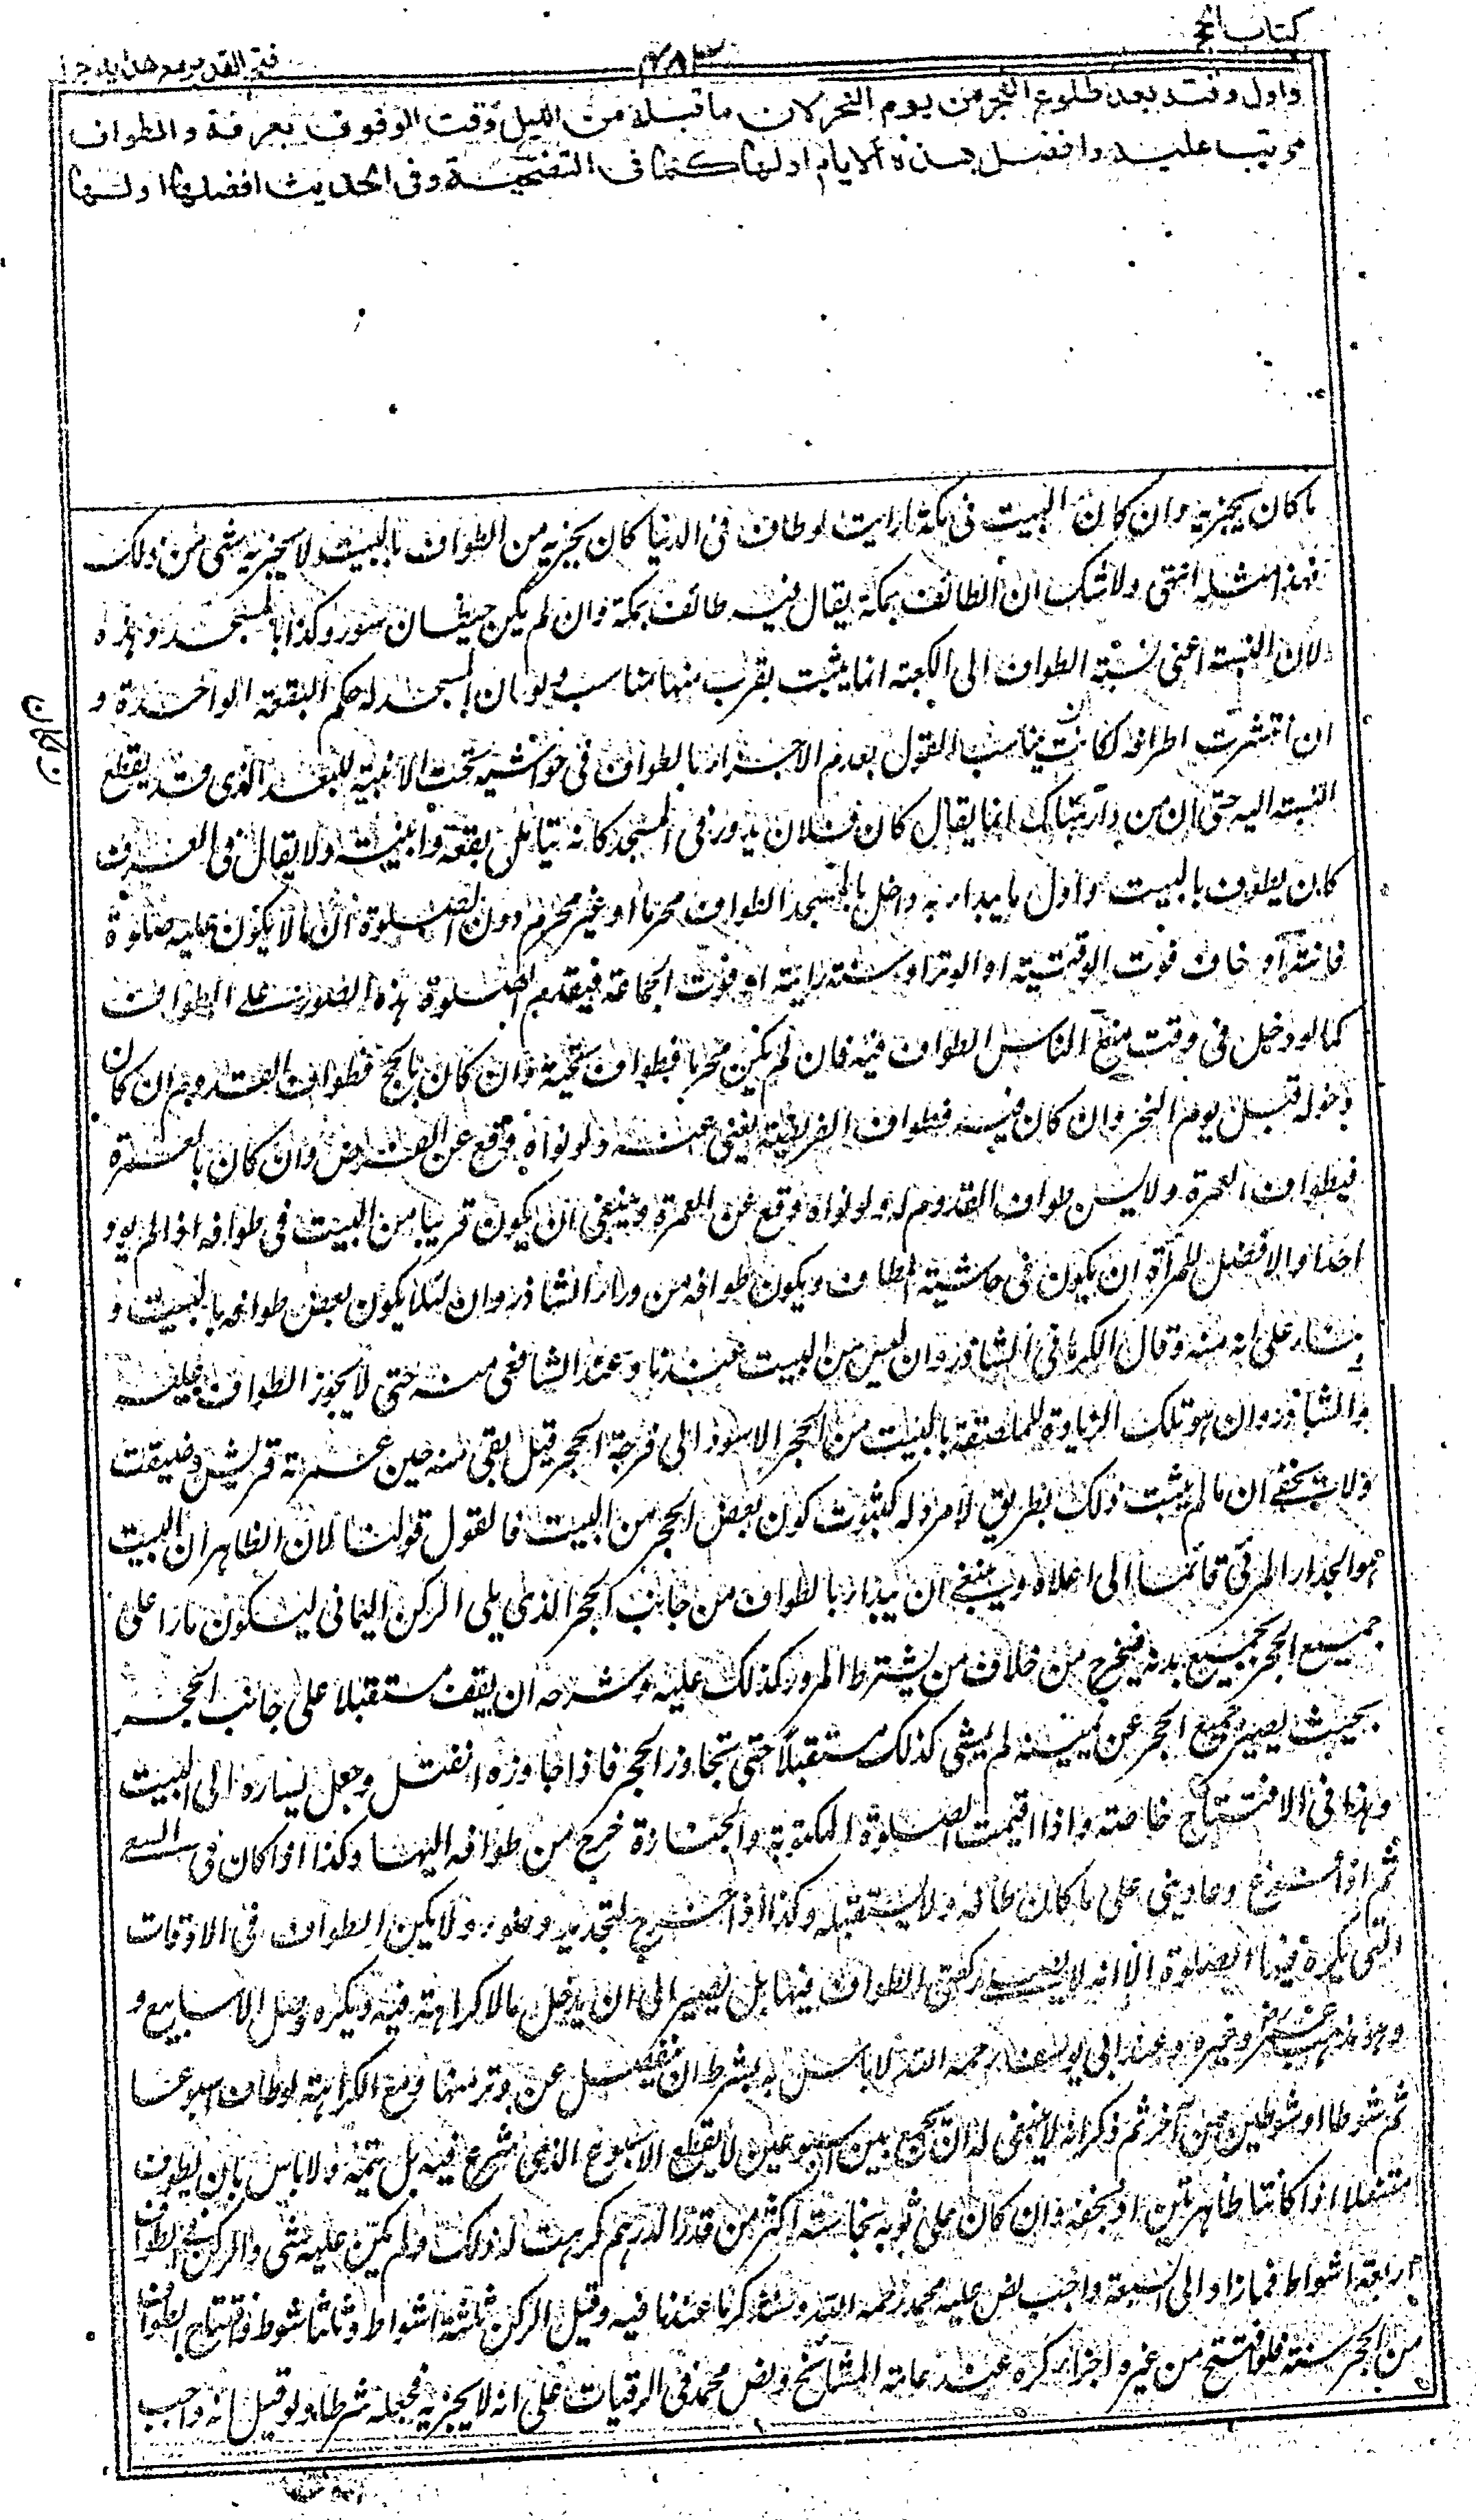 كتاب الحج
٤٨٣
فتح القدير مع هدايه ج ١
واول وقته بعد طلوع الفجر من يوم النحر لان ما قبله من الليل وقت الوقوف بعرفة والطواف
مرتب عليه وافضل هذه الايام اولها كما فى التضحية وفى الحديث افضلها اولها
ما كان يجزيه وان كان البيت فى مكة ارايت لو طاف فى الدنيا كان يجزيه من الطواف بالبيت ولا يجزيه شئ من ذلك
فهذا مثله انتهى ولا شك ان الطائف بمكة يقال فيه طائف بمكة وان لم يكن حيطان سور وكذا بالمسجد وهذه
لان النسبة اعنى نسبة الطواف الى الكعبة انما يثبت بقرب منها مناسب ولو ان المسجد له حكم البقعة الواحدة و
ن كان
ان انتشرت اطرافه لكانت يناسب القول بعدم الاجزاء بالطواف فى حواشيه تحت الابنية للبعد الذى قد يقطع
النسبة اليه حتى ان من دار هناك انما يقال كان فلان يدور فى المسجد كانه يتامل بقعه وابنيته ولا يقال فى العرف
كان يطوف بالبيت واول ما يبدا به داخل المسجد الطواف محرما او غير محرم دون الصلوة الا ان لا يكون عليه صلوة
فائتة او خاف فوت الوقتية او الوتر او سنة راتبة او فوت الجماعة فيقدم الصلوة فى هذه الصور على الطواف
كما لو دخل فى وقت منع الناس الطواف فيه فان لم يكن محرما فطواف تحية وان كان بالحج فطواف القدوم ان كان
دخوله قبل يوم النحر وان كان فيه فطواف الفريضة يغنى عنه ولو نواه وقع عن الفرض وان كان بالعمرة
فبطواف العمرة ولا يسن طواف القدوم له ولو نواه وقع عن العمرة وينبغى ان يكون قريبا من البيت فى طوافه اذا لم يوذ
احدا والافضل للمرأة ان يكون فى حاشية المطاف ويكون طوافه من وراء الشاذروان لئلا يكون بعض طوافه بالبيت و
بناء على انه منه وقال الكرمانى الشاذروان ليس من البيت عندنا وعند الشافعى منه حتى لا يجوز الطواف عليه
والشاذروان هو تلك الزيادة الملصقة بالبيت من الحجر الاسود الى فرجة الحجر قيل بقى منه حين عمرته قريش وضيقت
ولا يخفى ان ما لم يثبت ذلك بطريق لا مرد له كثبوت كون بعض الحجر من البيت فالقول قولنا لان الظاهر ان البيت
هو الجدار المرئى قائما الى اعلاه وينبغى ان يبدا بالطواف من جانب الحجر الذى يلى الركن اليمانى ليكون مارا على
جميع الحجر بجميع بدنه فيخرج من خلاف من يشترط المرور كذلك عليه وشرحه ان يقف مستقبلا على جانب الحجر
بحيث يصير جميع الحجر عن يمينه ثم يمشى كذلك مستقبلا حتى تجاوز الحجر فاذا جاوزه انفتل وجعل يساره الى البيت
وهذا فى الافتتاح خاصة واذا اقيمت الصلوة المكتوبة والجنازة خرج من طوافه اليها وكذا اذا كان فى السعى
ثم اذا فرغ وعاد بنى على ما كان طافه ولا يستقبله وكذا اذا خرج لتجديد وضوء ولا يكره الطواف فى الاوقات
التى يكره فيها الصلوة الا انه لا يصلى ركعتى الطواف فيها بل يصبر الى ان يدخل ما لا كراهة فيه ويكره وصل الاسابيع و
وهو مذهب عمر وغيره وعند ابى يوسف رحمه الله لا باس به بشرط ان ينفصل عن وتر منها ومع الكراهة لو طاف اسبوعا
ثم شوطا او شوطين من آخر ثم ذكر انه لا ينبغى له ان يجمع بين اسبوعين لا يقطع الاسبوع الذى شرع فيه بل يتمه ولا باس بان يطوف
متنعلا اذا كانتا طاهرتين او بخفه وان كان على ثوبه نجاسة اكثر من قدر الدرهم كرهت له ذلك ولم يكن عليه شئ والركن فى الطواف
اربعة اشواط فما زاد الى السبعة واجب نص عليه محمد رحمه الله وسنذكر ما عندنا فيه وقيل الركن ثلثة اشواط وثلثا شوط وافتتاح الطواف
من الحجر سنة فلو افتتح من غيره اجزاه وكره عند عامة المشائخ ونص محمد فى الرقيات على انه لا يجزيه فجعله شرطا ولو قيل انه واجب